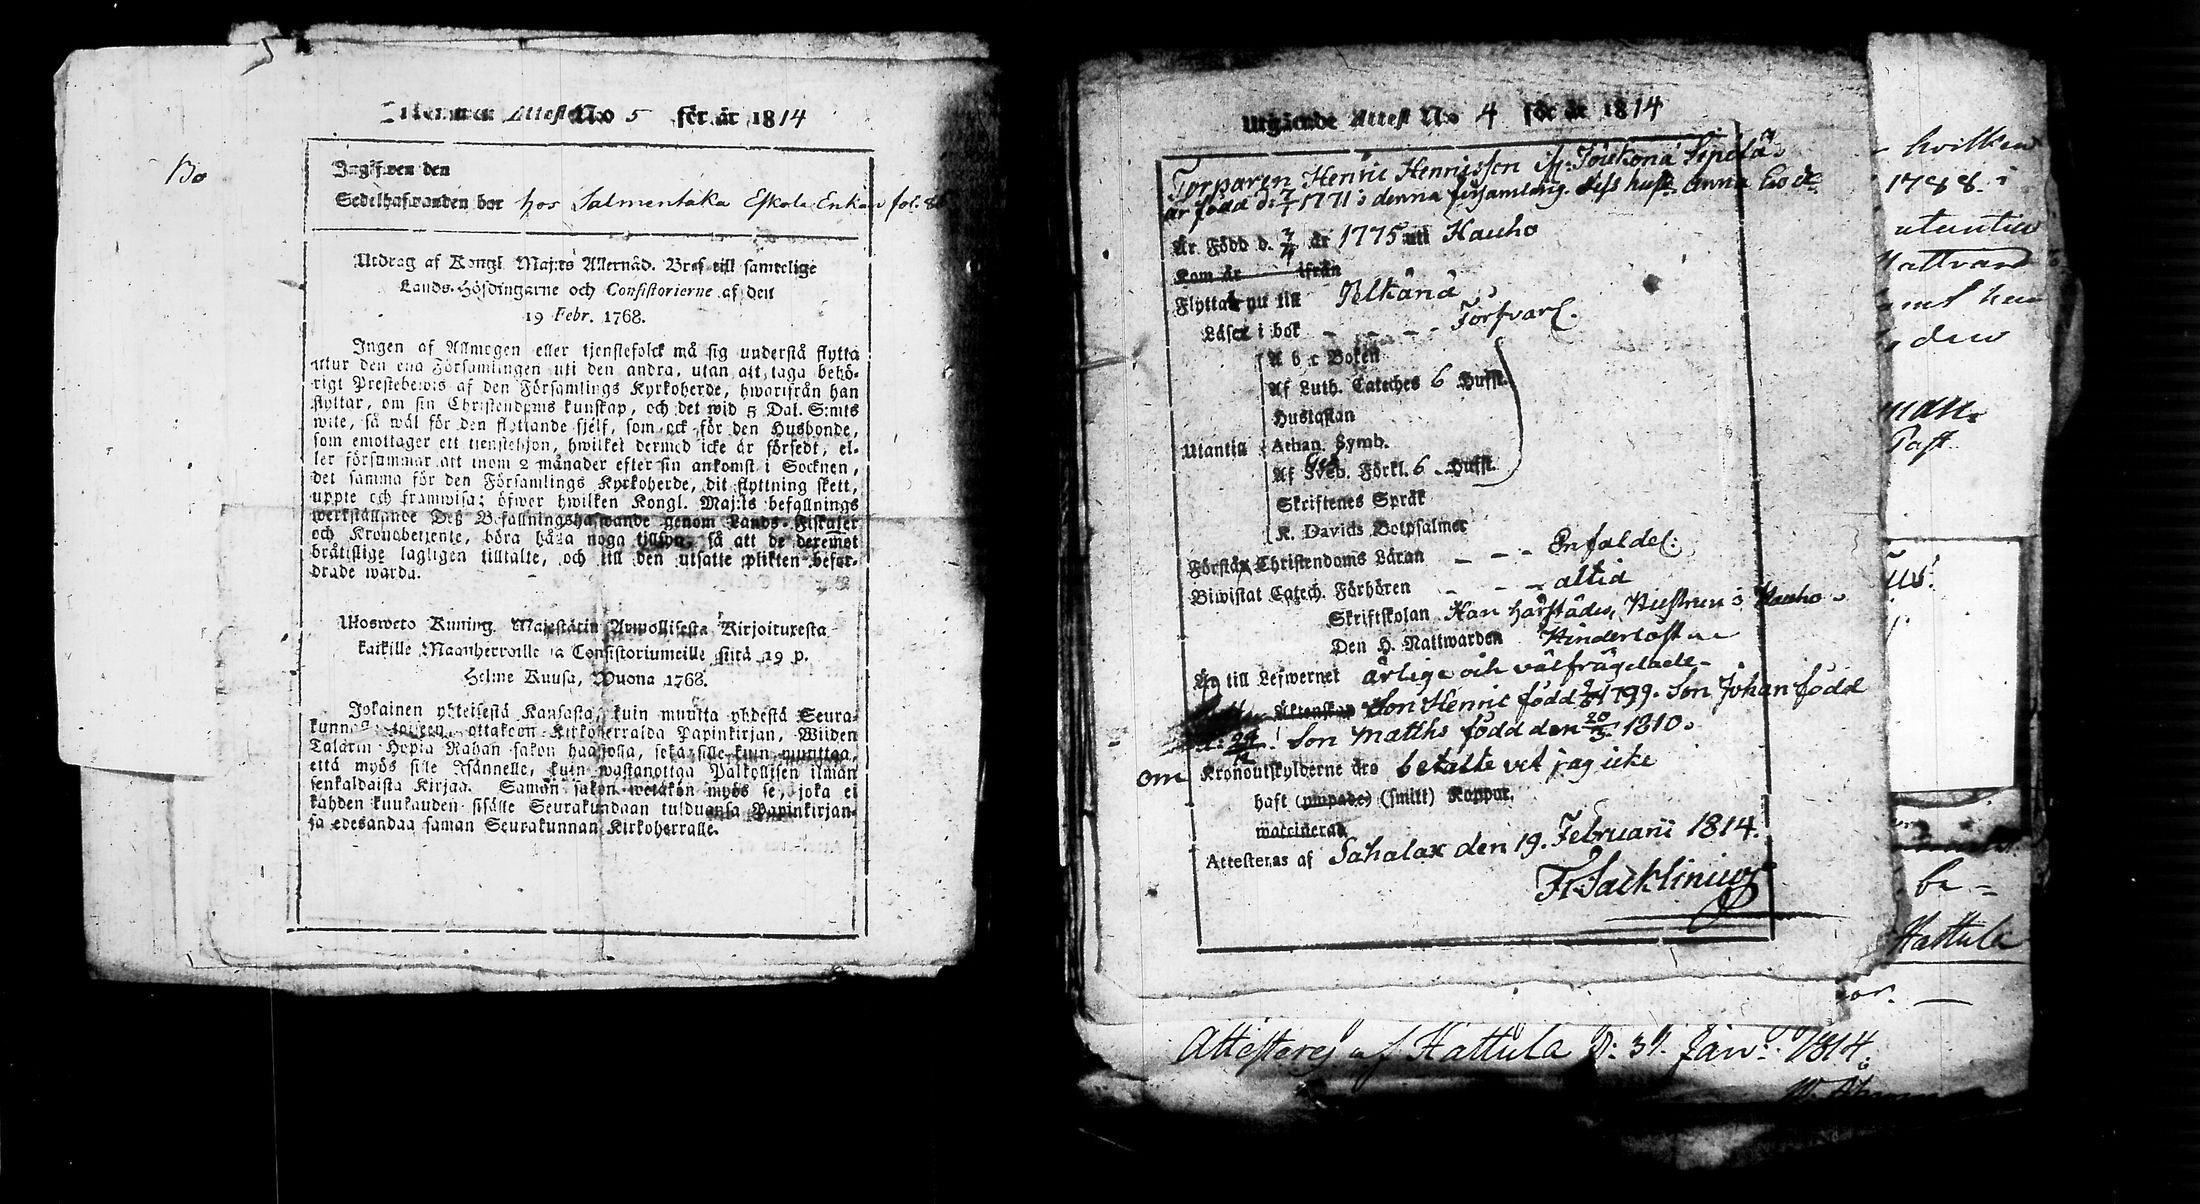 Attest No 5 för år 1814
Bo
Ingifwen den
Sedelhafwanden bor hos Salmentaka Eskola Enkan fol. 8
Utdrag af Kongl. Maj:ts Allernåd. Bref till samtelige
Lands-Höfdingarne och Consistorierne af den
19 Febr. 1768.
Ingen af Allmogen eller tjenstefolck må sig understå flytta
utur den ena Församlingen uti den andra, utan att taga behö-
rigt Prestebewis af den Församlings Kyrkoherde, hwarifrån han
flyttar, om sin Christendoms kunskap, och det wid 5 Dal. S:mts
wite, så wäl för den flyttande sjelf, som ock för den Husbonde,
som emottager ett tjenstehjon, hwilket dermed icke är försedt, el-
ler försummar att inom 2 månader efter sin ankomst i Socknen,
det samma för den Församlings Kyrkoherde, dit flyttning skett,
uppte och framwisa; öfwer hwilken Kongl. Maj:ts befallnings
werkställande Deß Befallningshafwande genom Lands-Fiskaler
och Kronobetjente, böra hålla noga tillsyn, så att de deremot
bråttslige lagligen tilltalte, och till den utsatte plikten befor-
drade warda.
Ulosweto Kuning. Majestätin Armollisesta Kirjoituxesta
kaikille Maanherroille ja Consistoriumeille siitä 19 p.
Helme Kuusa, Wuona 1768.
Jokainen yhteisestä Kansasta, kuin muutta yhdestä Seura-
kunnasta toiseen, ottakoon Kirkoherralda Papinkirjan, Wiiden
Talarin Hopia Rahan sakon haastolla, sekä sille kuin muuttaa,
että myös sille Isännelle, kuin wastanottaa Palkollisen ilman
senkaldaista Kirjaa. Saman sakon wetäkön myös se, joka ei
kahden kuukauden sisälle Seurakundaan tulduansa Papinkirjan-
sa edesandaa saman Seurakunnan Kirkoherralle.
Utgående Attest No 4 för år 1814
Torparen Henric Henricsson ifr: Joukona Sipola
är född d: 7/1 1771 i denna församling. dess hust. Anna
Är Född d. 7/4 år 1775 uti Hauho
Kom år ifrån
Flyttar nu till Pelkänä
Läser i bok - - - - Forsvarl.
A b c Boken
Af Luth. Cateches 6 Hufst.
Hustaflan
Utantill Athan. Symb.
Af Sveb. Förkl. 6 Hufst.
Skriftenes Språk
K. Davids Botpsalmer
Förstår Christendoms Läran - - - Enfaldel:
Biwistat Catech. Förhören - - - altid
Skriftskolan Han härstädes, Hustrun i Hauho
Den H. Nattwarden Hinderlöst
Är till Lefwernet ärlige och välfrägdade
Äktenskap Son Henric född 1799. Son Johan född
Son Matths född den 20/3 1810.
om Kronoutskylderne äro betalte vet jag icke
haft (ympade) (smitt) Koppor.
waccinerad
Attesteras af Sahalax den 19. Februarii 1814.
Fr. Jacklinius
hvilken
1788. i
Nattvard
den
Past
be=
Hattula
Attesteres af Hattula d: 31. Jan: 1814.